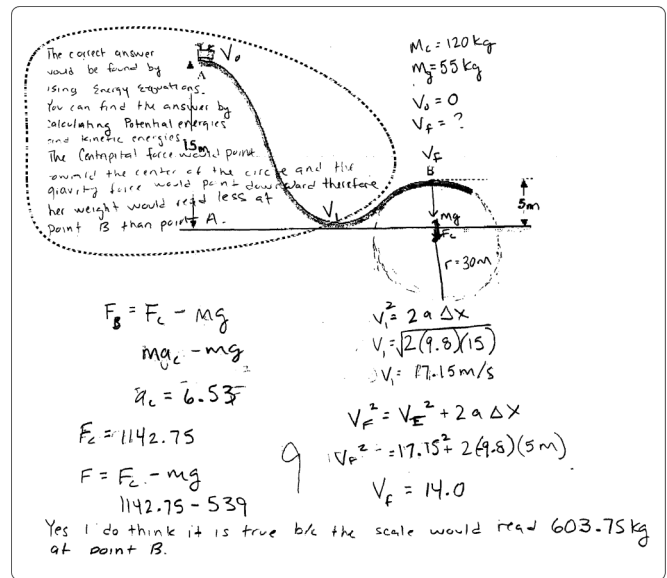 The correct answer
would be found by
using Energy Equations.
You can find the answer by
calculating Potential energies
and kinetic energies.
The Centripital force would point
towards the center of the circle and the
gravity force would point downward therefore
her weight would read less at
point B than point A.
V₀
A
15m
V₁
Mc = 120 kg
Mg = 55 kg
V₀ = 0
Vf = ?
Vf
B
5m
mg
Fc
r = 30m
FB = Fc - mg
mac - mg
ac = 6.53
Fc = 1142.75
F = Fc - mg
1142.75 - 539
9
V₁² = 2 a Δx
V₁ = √2(9.8)(15)
V₁ = 17.15 m/s
VF² = VI² + 2 a Δx
VF² = 17.15² + 2(-9.8)(5m)
Vf = 14.0
Yes I do think it is true b/c the scale would read 603.75 kg
at point B.